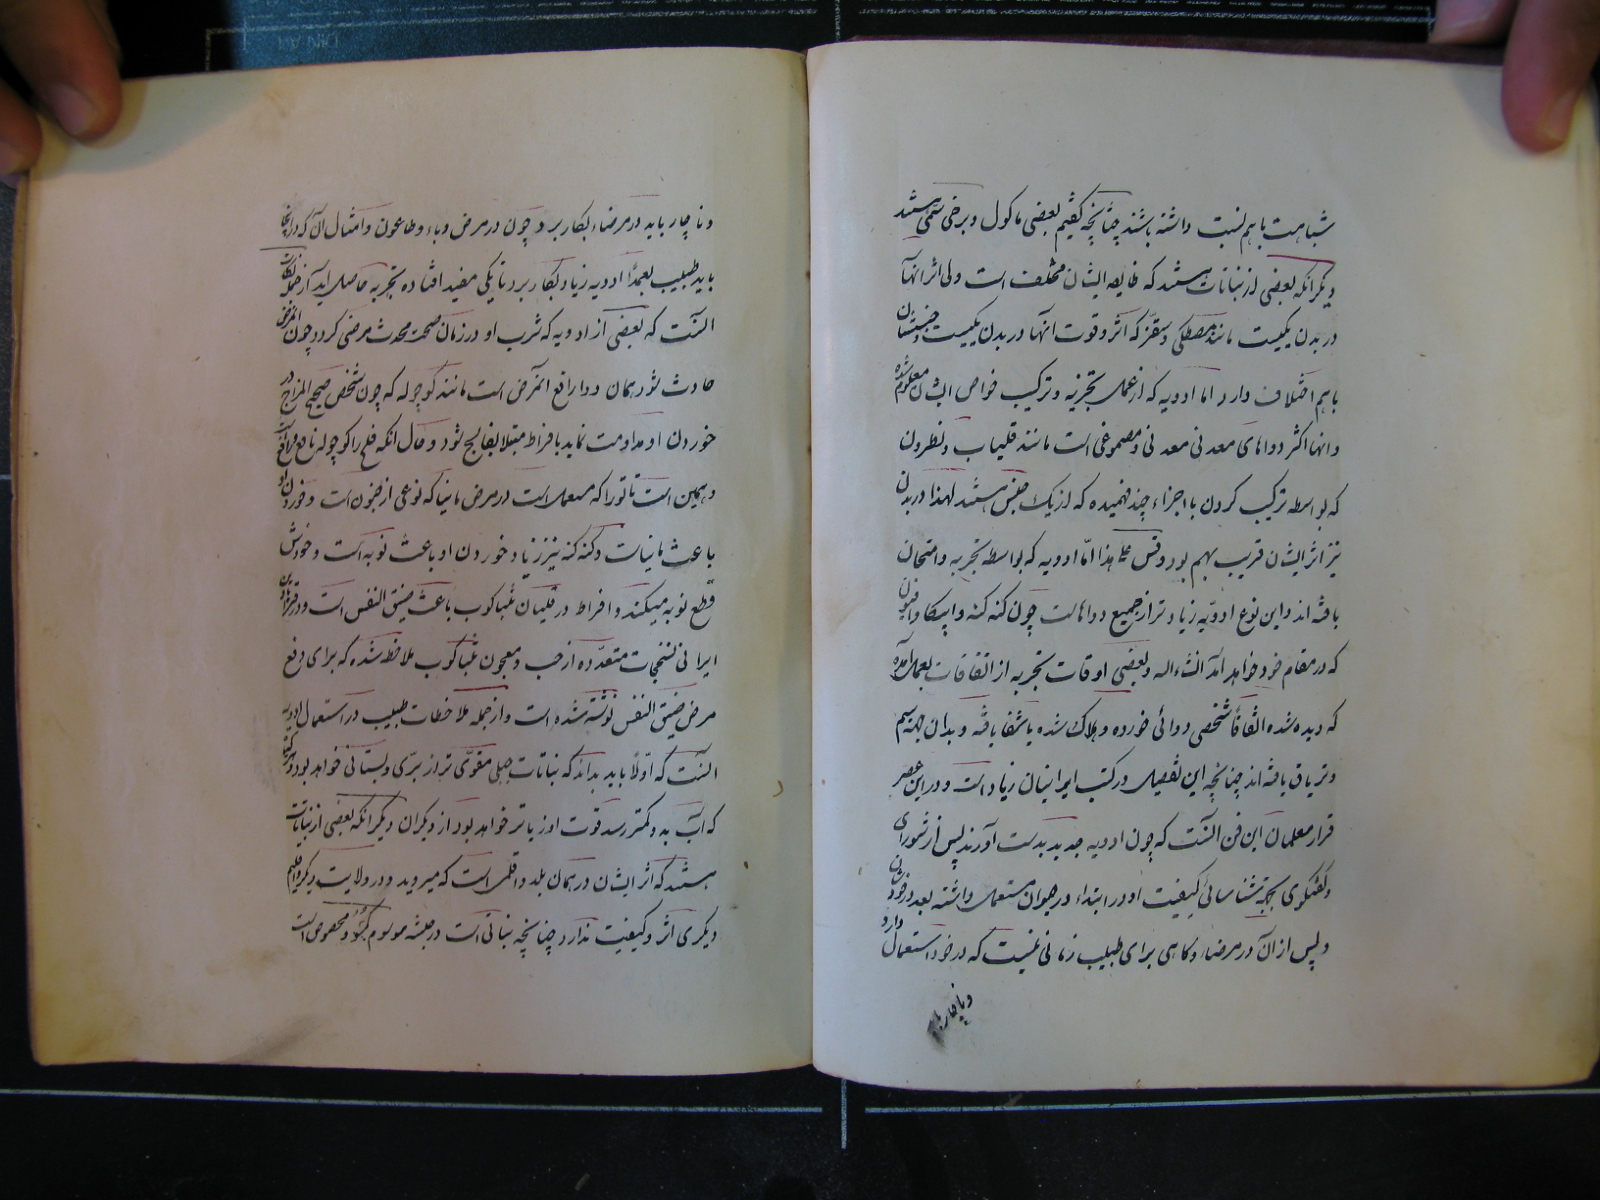 شباهت باهم نسبت داشته باشند چنانچه گفتیم بعضی ماکول و برخی سمی هستند
دیگر انکه بعضی از نباتات هستند که طایفه ایشان مختلف است ولی اثر انها
در بدن یکیست مانند مصطکی و سقز که اثر و قوت انها در بدن یکیست و جنسشان
باهم اختلاف دارد اما ادویه که از عمل تجزیه و ترکیب خواص ایشان معلوم شده
و انها اکثر دواهای معدنی و مصموغی است مانند قلیاب و نطرون
که بواسطه ترکیب کردن با اجزاء چند فهمیده که از یک جنس هستند لهذا در بدن
نیز اثر ایشان قریب بهم بود و قس علی هذا امّا ادویه که بواسطه تجربه و امتحان
یافته اند و این نوع ادویّه زیادتر از جمیع دواهاست چون کنه کنه و ایپکا و افیون
که در مقام خود خواهد امد انشاءاله و بعضی اوقات تجربه از اتفاقات بعمل آمده
که دیده شده اتفاقاً شخصی دوائی خورده و هلاک شده یا شفا یافته و بدان جهة سم
و تریاق یافته اند چنانچه این تفصیل در کتب ایرانیان زیاد است و در این عصر
قرار معلمان این فن انست که چون ادویه جدید بدست آورند پس از شورای
و کفتگری بجهة شناسائی کیفیت او در ابتداء در حیوان مستعمل داشته بعد در خودشان
و پس از ان در مرضاء و کاهی برای طبیب زمانی نیست که در خود استعمال دارد
و ناچار باید
و ناچار باید در مرضاء بکار برد چون در مرض وباء و طاعون و امثال ان که در اینجا
باید طبیب بعمداً ادویه زیاد بکار برد تا یکی مفید افتاده تجربه حاصل اید از جمله نکات
انست که بعضی از ادویه که شرب او در زمان صحت محدث مرضی کردد چون انمرض
حادث شود همان دوا رافع انمرض است مانند کوچوله که چون شخص صحیح المزاج در
خوردن او مداومت نماید بافراط مبتلا بفالج شود و حال انکه فلج را کوچوله نافع و رافع
و همین است تاتوراکه مستعمل است در مرض مانیا که نوعی از جنون است و خوردن او
باعث مانیاست و کنه کنه نیز زیاد خوردن او باعث نوبه است و خودش
قطع نوبه میکند و افراط در قلیان تنباکوب باعث ضیق النفس است و در قرابادین
ایرانی نسخجات متعدّده از حب و معجون تنباکوب ملاحظه شده که برای دفع
مرض ضیق النفس نوشته شده است و از جمله ملاحظات طبیب در استعمال ادویه
انست که اوّلاً باید بداند که نباتات جبلی مقوّی تر از برّی و بستانی خواهد بود و هر کیاه
که آب به و کمتر رسد قوت او زیاتر خواهد بود از دیکران دیکر انکه بعضی از نباتات
هستند که اثر ایشان در همان بلد و اقلیم است که میروید و در ولایت دیکر و اقلیم
دیکری اثر و کیفیت ندارد چنانچه نباتی است در حبشه موسوم بکسو و مخصوص است